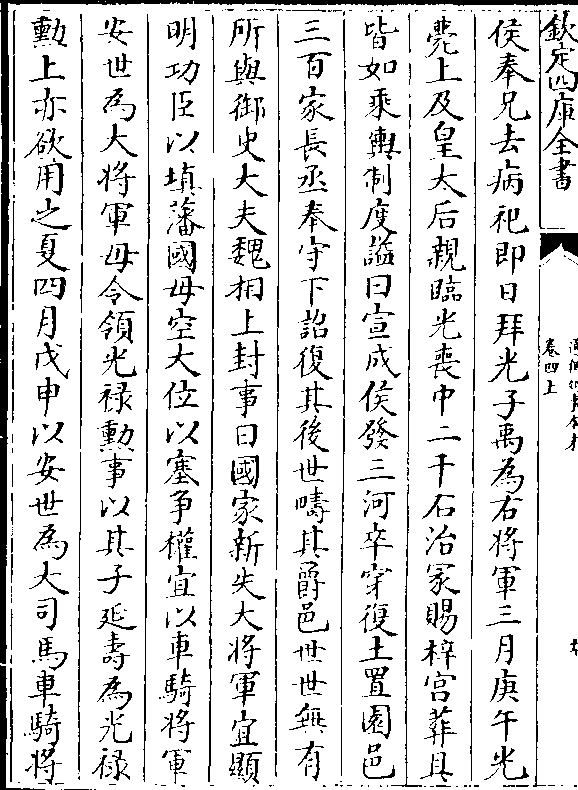 欽定四庫全書
卷四上
侯奉兄去病祀即日拜光子禹為右將軍三月庚午光
薨上及皇太后親臨光喪中二千石治冢賜梓宫葬具
皆如乘輿制度諡曰宣成侯發三河卒穿復土置園邑
三百家長丞奉守下詔復其後世疇其爵邑世世無有
所與御史大夫魏相上封事曰國家新失大將軍宜顯
明功臣以填藩國毋空大位以塞爭權宜以車騎將軍
安世為大將軍毋令領光禄勳事以其子延壽為光禄
勳上亦欲用之夏四月戊申以安世為大司馬車騎將